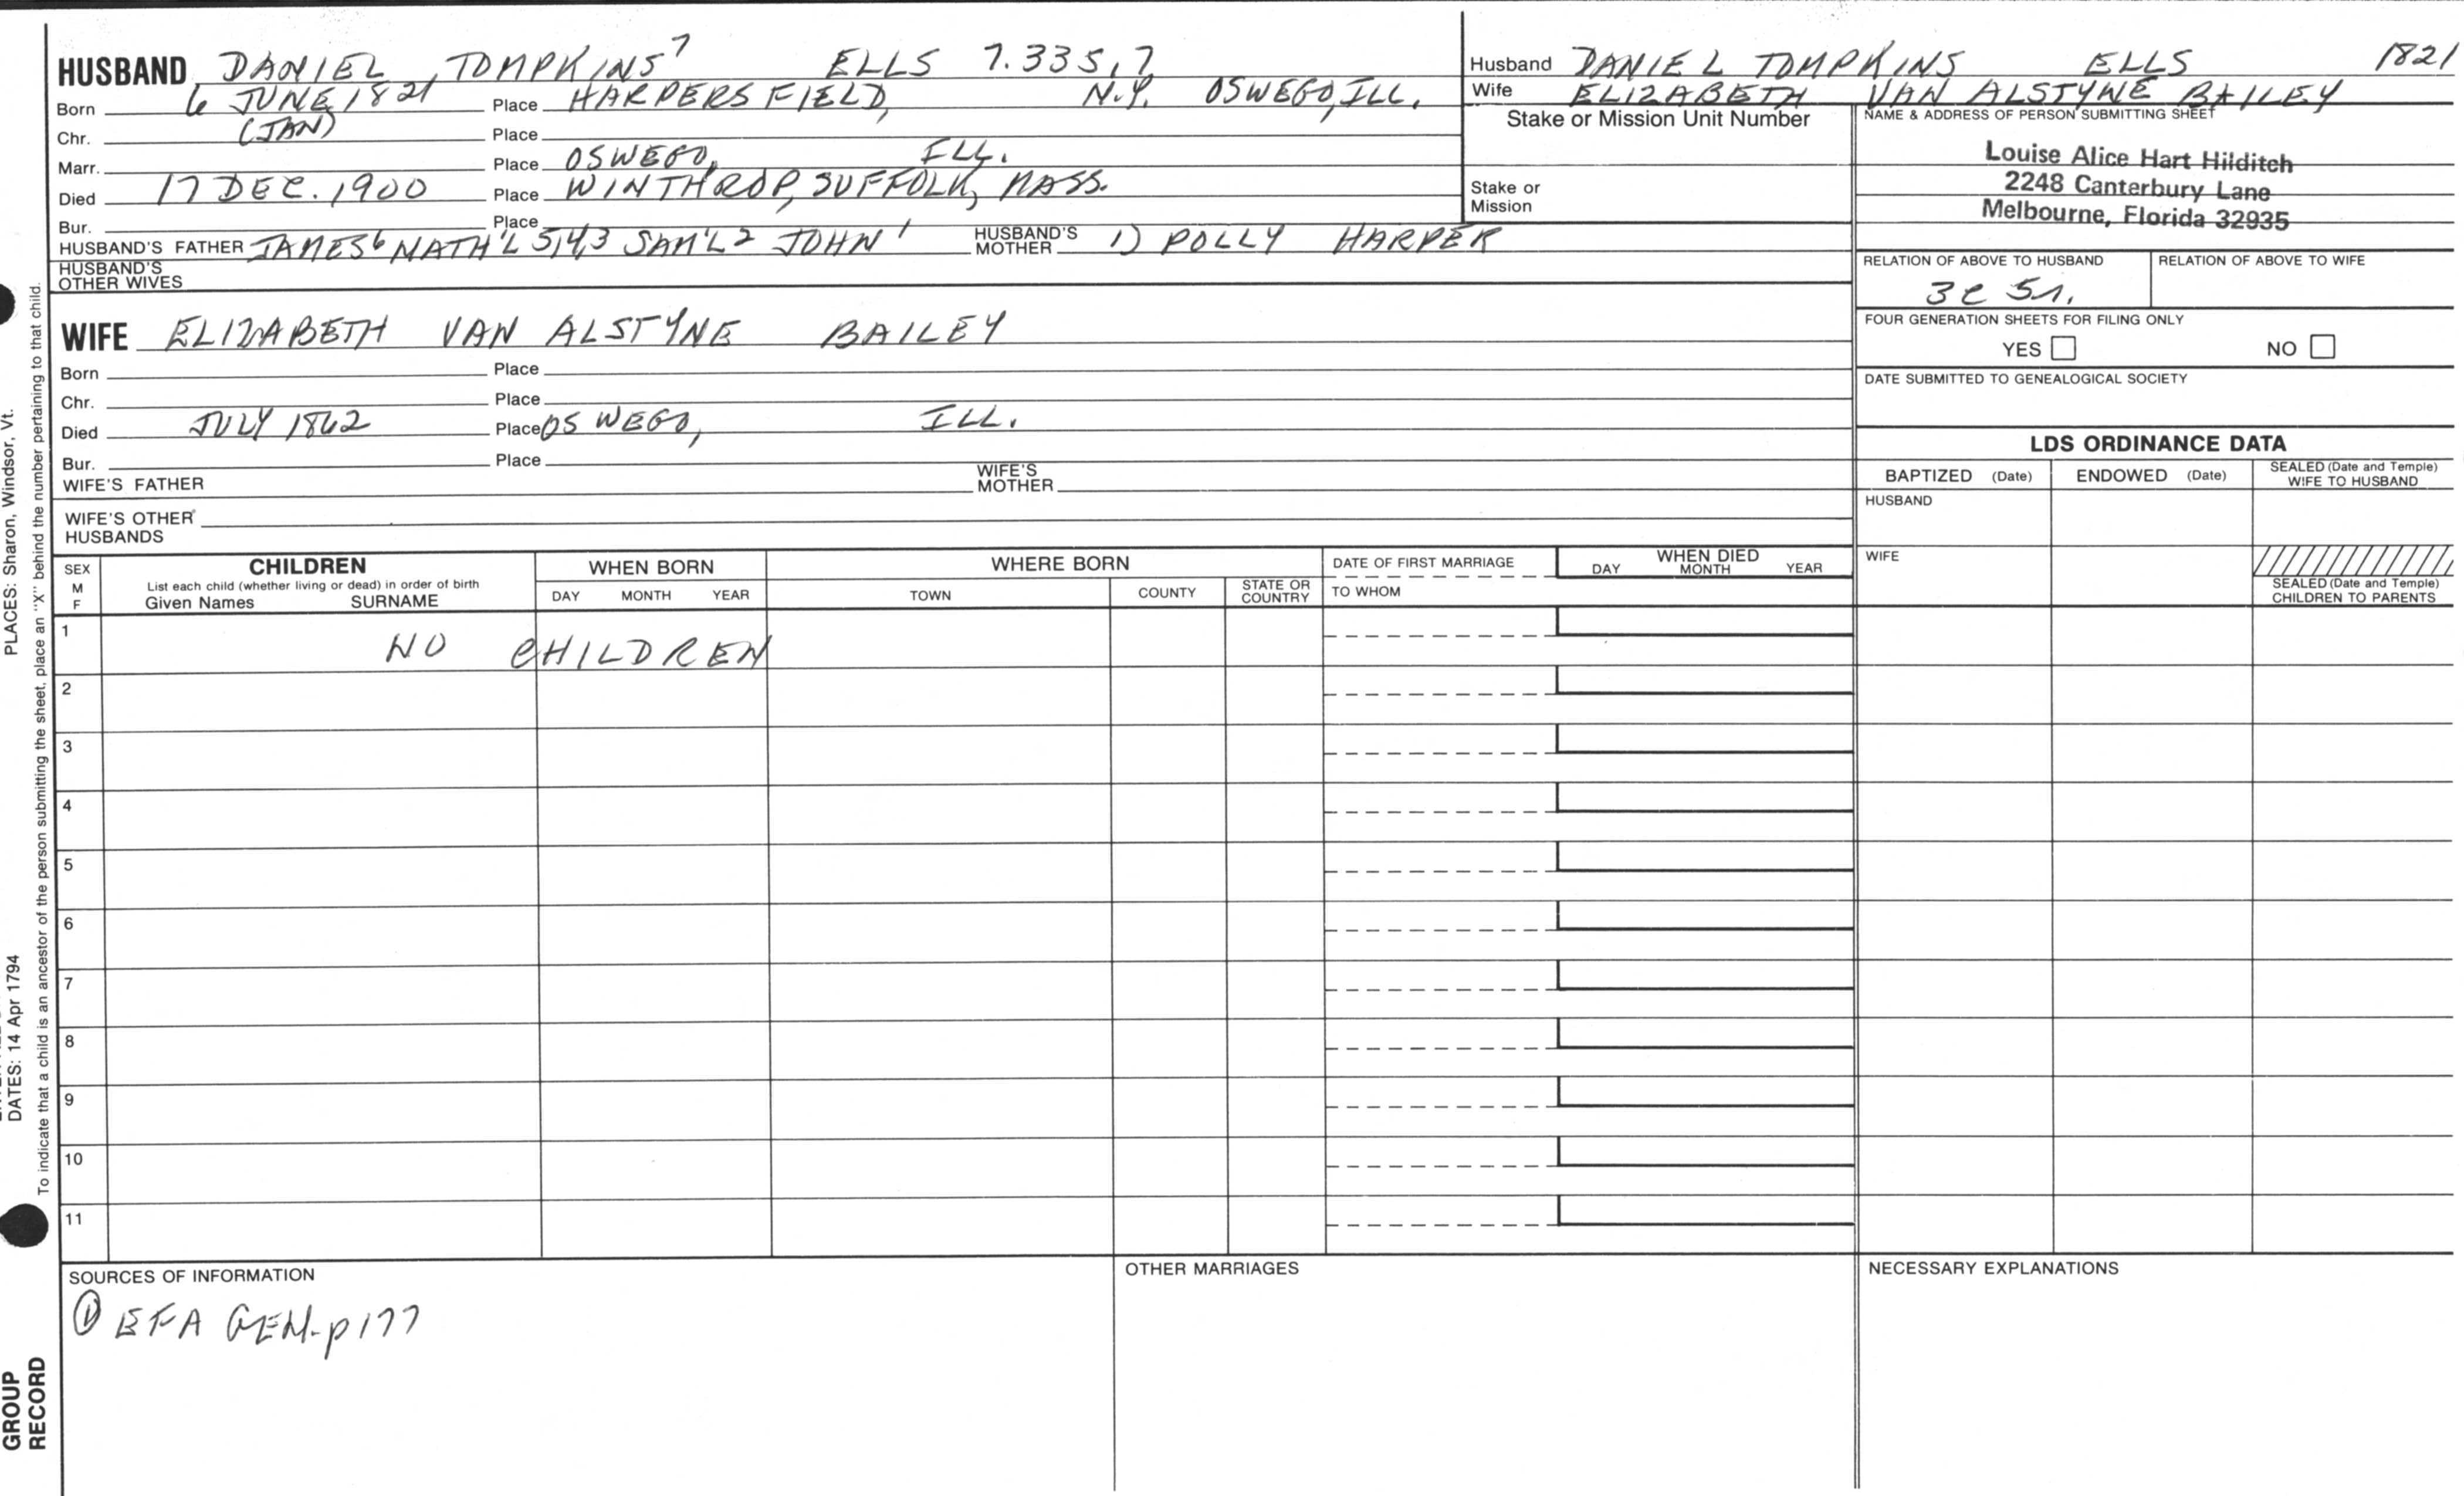 HUSBAND DANIEL TOMPKINS⁷ ELLS 7.335,7
Born 6 JUNE 1821 Place HARPERSFIELD, N.Y. OSWEGO, ILL.
Chr. (JAN) Place
Marr. Place OSWEGO, ILL.
Died 17 DEC. 1900 Place WINTHROP, SUFFOLK, MASS.
Bur. Place
HUSBAND'S FATHER JAMES⁶ NATH'L 5,4,3 SAM'L 2 JOHN ¹ HUSBAND'S MOTHER 1) POLLY HARPER
HUSBAND'S OTHER WIVES
Husband DANIEL TOMPKINS ELLS 1821
Wife ELIZABETH VAN ALSTYNE BAILEY
Stake or Mission Unit Number
Stake or Mission
NAME & ADDRESS OF PERSON SUBMITTING SHEET
Louise Alice Hart Hilditch
2248 Canterbury Lane
Melbourne, Florida 32935
RELATION OF ABOVE TO HUSBAND RELATION OF ABOVE TO WIFE
3c 5r.
FOUR GENERATION SHEETS FOR FILING ONLY
YES NO
DATE SUBMITTED TO GENEALOGICAL SOCIETY
WIFE ELIZABETH VAN ALSTYNE BAILEY
Born Place
Chr. Place
Died JULY 1862 Place OSWEGO, ILL.
Bur. Place
WIFE'S FATHER WIFE'S MOTHER
WIFE'S OTHER HUSBANDS
LDS ORDINANCE DATA
BAPTIZED (Date) ENDOWED (Date) SEALED (Date and Temple) WIFE TO HUSBAND
HUSBAND
WIFE
SEALED (Date and Temple) CHILDREN TO PARENTS
SEX M F
CHILDREN
List each child (whether living or dead) in order of birth
Given Names SURNAME
WHEN BORN
DAY MONTH YEAR
WHERE BORN
TOWN COUNTY STATE OR COUNTRY
DATE OF FIRST MARRIAGE
TO WHOM
WHEN DIED
DAY MONTH YEAR
1 NO CHILDREN
2
3
4
5
6
7
8
9
10
11
SOURCES OF INFORMATION
① EFA GEN. p177
OTHER MARRIAGES
NECESSARY EXPLANATIONS
PLACES: Sharon, Windsor, Vt.
DATES: 14 Apr 1794
To indicate that a child is an ancestor of the person submitting the sheet, place an "X" behind the number pertaining to that child.
GROUP
RECORD